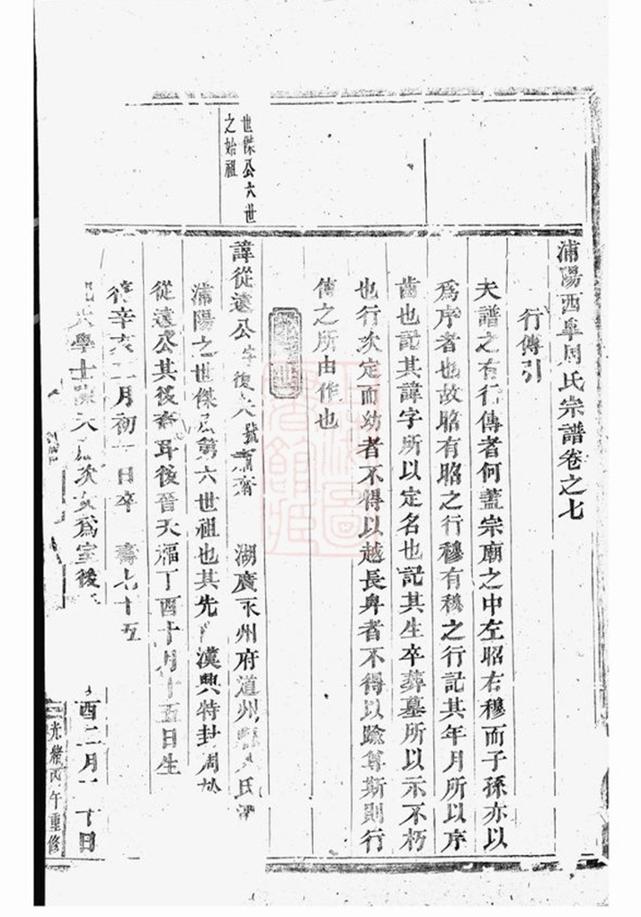 浦陽西皐周氏宗譜卷之七
行傳引
夫譜之有行傳者何蓋宗廟之中左昭右穆而子孫亦以
爲序者也故昭有昭之行穆有穆之行記其年月所以序
齒也記其諱字所以定名也記其生卒葬墓所以示不朽
也行次定而幼者不得以越長卑者不得以踰尊斯則行
傳之所由作也
世傑公六世
之始祖
諱從遠公字復 號 齋 湖廣永州府道州 氏
浦陽之世傑公第六世祖也其先 漢興特封周
從遠公其後裔耳後晉天福丁酉十月十五日生
辛亥二月初 日卒 壽七十五
學士 次女爲室後
酉二月 十日
光緒丙午重修